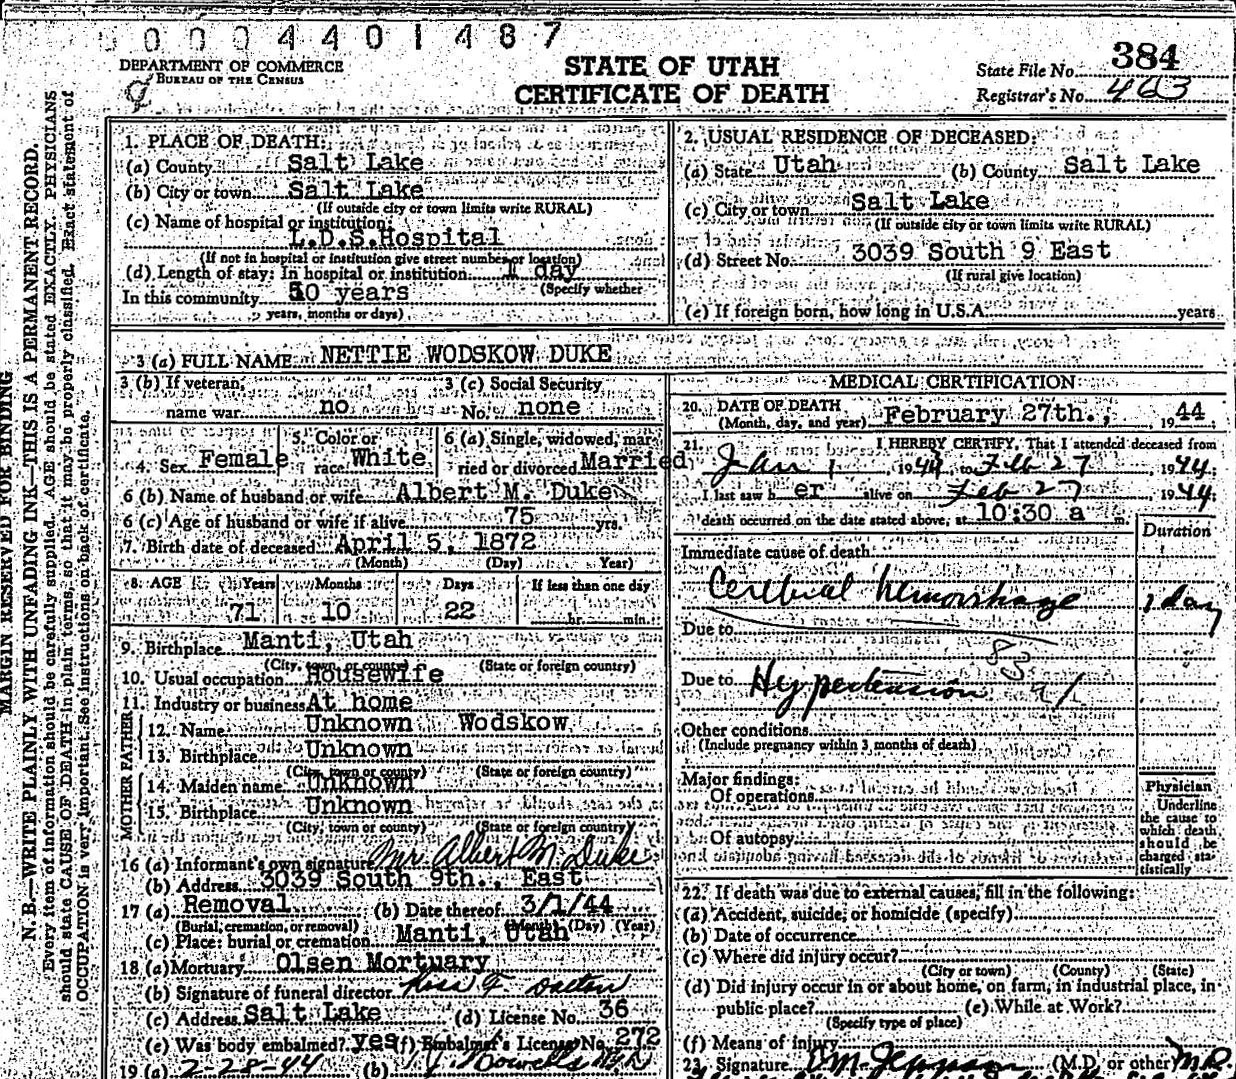 0004401487
DEPARTMENT OF COMMERCE
BUREAU OF THE CENSUS
STATE OF UTAH
CERTIFICATE OF DEATH
State File No. 384
Registrar's No. 463
MARGIN RESERVED FOR BINDING
N. B.—WRITE PLAINLY WITH UNFADING INK—THIS IS A PERMANENT RECORD.
Every item of information should be carefully supplied. AGE should be stated EXACTLY. PHYSICIANS
should state CAUSE OF DEATH in plain terms, so that it may be properly classified. Exact statement of
OCCUPATION is very important. See instructions on back of certificate.
1. PLACE OF DEATH:
(a) County Salt Lake
(b) City or town Salt Lake
(If outside city or town limits write RURAL)
(c) Name of hospital or institution:
L.D.S.Hospital
(If not in hospital or institution give street number or location)
(d) Length of stay: In hospital or institution 1 day
(Specify whether
In this community 50 years
years, months or days)
2. USUAL RESIDENCE OF DECEASED:
(a) State Utah (b) County Salt Lake
(c) City or town Salt Lake
(If outside city or town limits write RURAL)
(d) Street No. 3039 South 9 East
(If rural give location)
(e) If foreign born, how long in U.S.A. years
3 (a) FULL NAME NETTIE WODSKOW DUKE
3 (b) If veteran, name war no
3 (c) Social Security No. none
4. Sex Female
5. Color or race White
6 (a) Single, widowed, married or divorced Married
6 (b) Name of husband or wife Albert M. Duke
6 (c) Age of husband or wife if alive 75 yrs.
7. Birth date of deceased April 5, 1872
(Month) (Day) (Year)
8. AGE Years Months Days If less than one day
71 10 22 hr. min.
9. Birthplace Manti, Utah
(City, town or county) (State or foreign country)
10. Usual occupation Housewife
11. Industry or business At home
FATHER
12. Name Unknown Wodskow
13. Birthplace Unknown
(City, town or county) (State or foreign country)
MOTHER
14. Maiden name Unknown
15. Birthplace Unknown
(City, town or county) (State or foreign country)
16 (a) Informant's own signature Mr. Albert M Duke
(b) Address 3039 South 9th., East
17 (a) Removal (b) Date thereof 3/1/44
(Burial, cremation, or removal) (Month) (Day) (Year)
(c) Place: burial or cremation Manti, Utah
18 (a) Mortuary Olsen Mortuary
(b) Signature of funeral director
(c) Address Salt Lake (d) License No. 36
(e) Was body embalmed? yes (f) Embalmer's License No. 272
19 (a) 2-28-44 (b)
MEDICAL CERTIFICATION
20. DATE OF DEATH
(Month, day, and year) February 27th., 1944
21. I HEREBY CERTIFY, That I attended deceased from
Jan 1, 1944 to Feb 27 1944;
I last saw her alive on Feb 27, 1944;
death occurred on the date stated above, at 10:30 a m.
Duration
Immediate cause of death
Cerebral hemorrhage 1 day
Due to
Due to Hypertension
Other conditions
(Include pregnancy within 3 months of death)
Major findings:
Of operations
Of autopsy
Physician
Underline
the cause to
which death
should be
charged sta-
tistically
22. If death was due to external causes, fill in the following:
(a) Accident, suicide, or homicide (specify)
(b) Date of occurrence
(c) Where did injury occur?
(City or town) (County) (State)
(d) Did injury occur in or about home, on farm, in industrial place, in
public place? (e) While at Work?
(Specify type of place)
(f) Means of injury
23. Signature (M.D. or other) M.D.